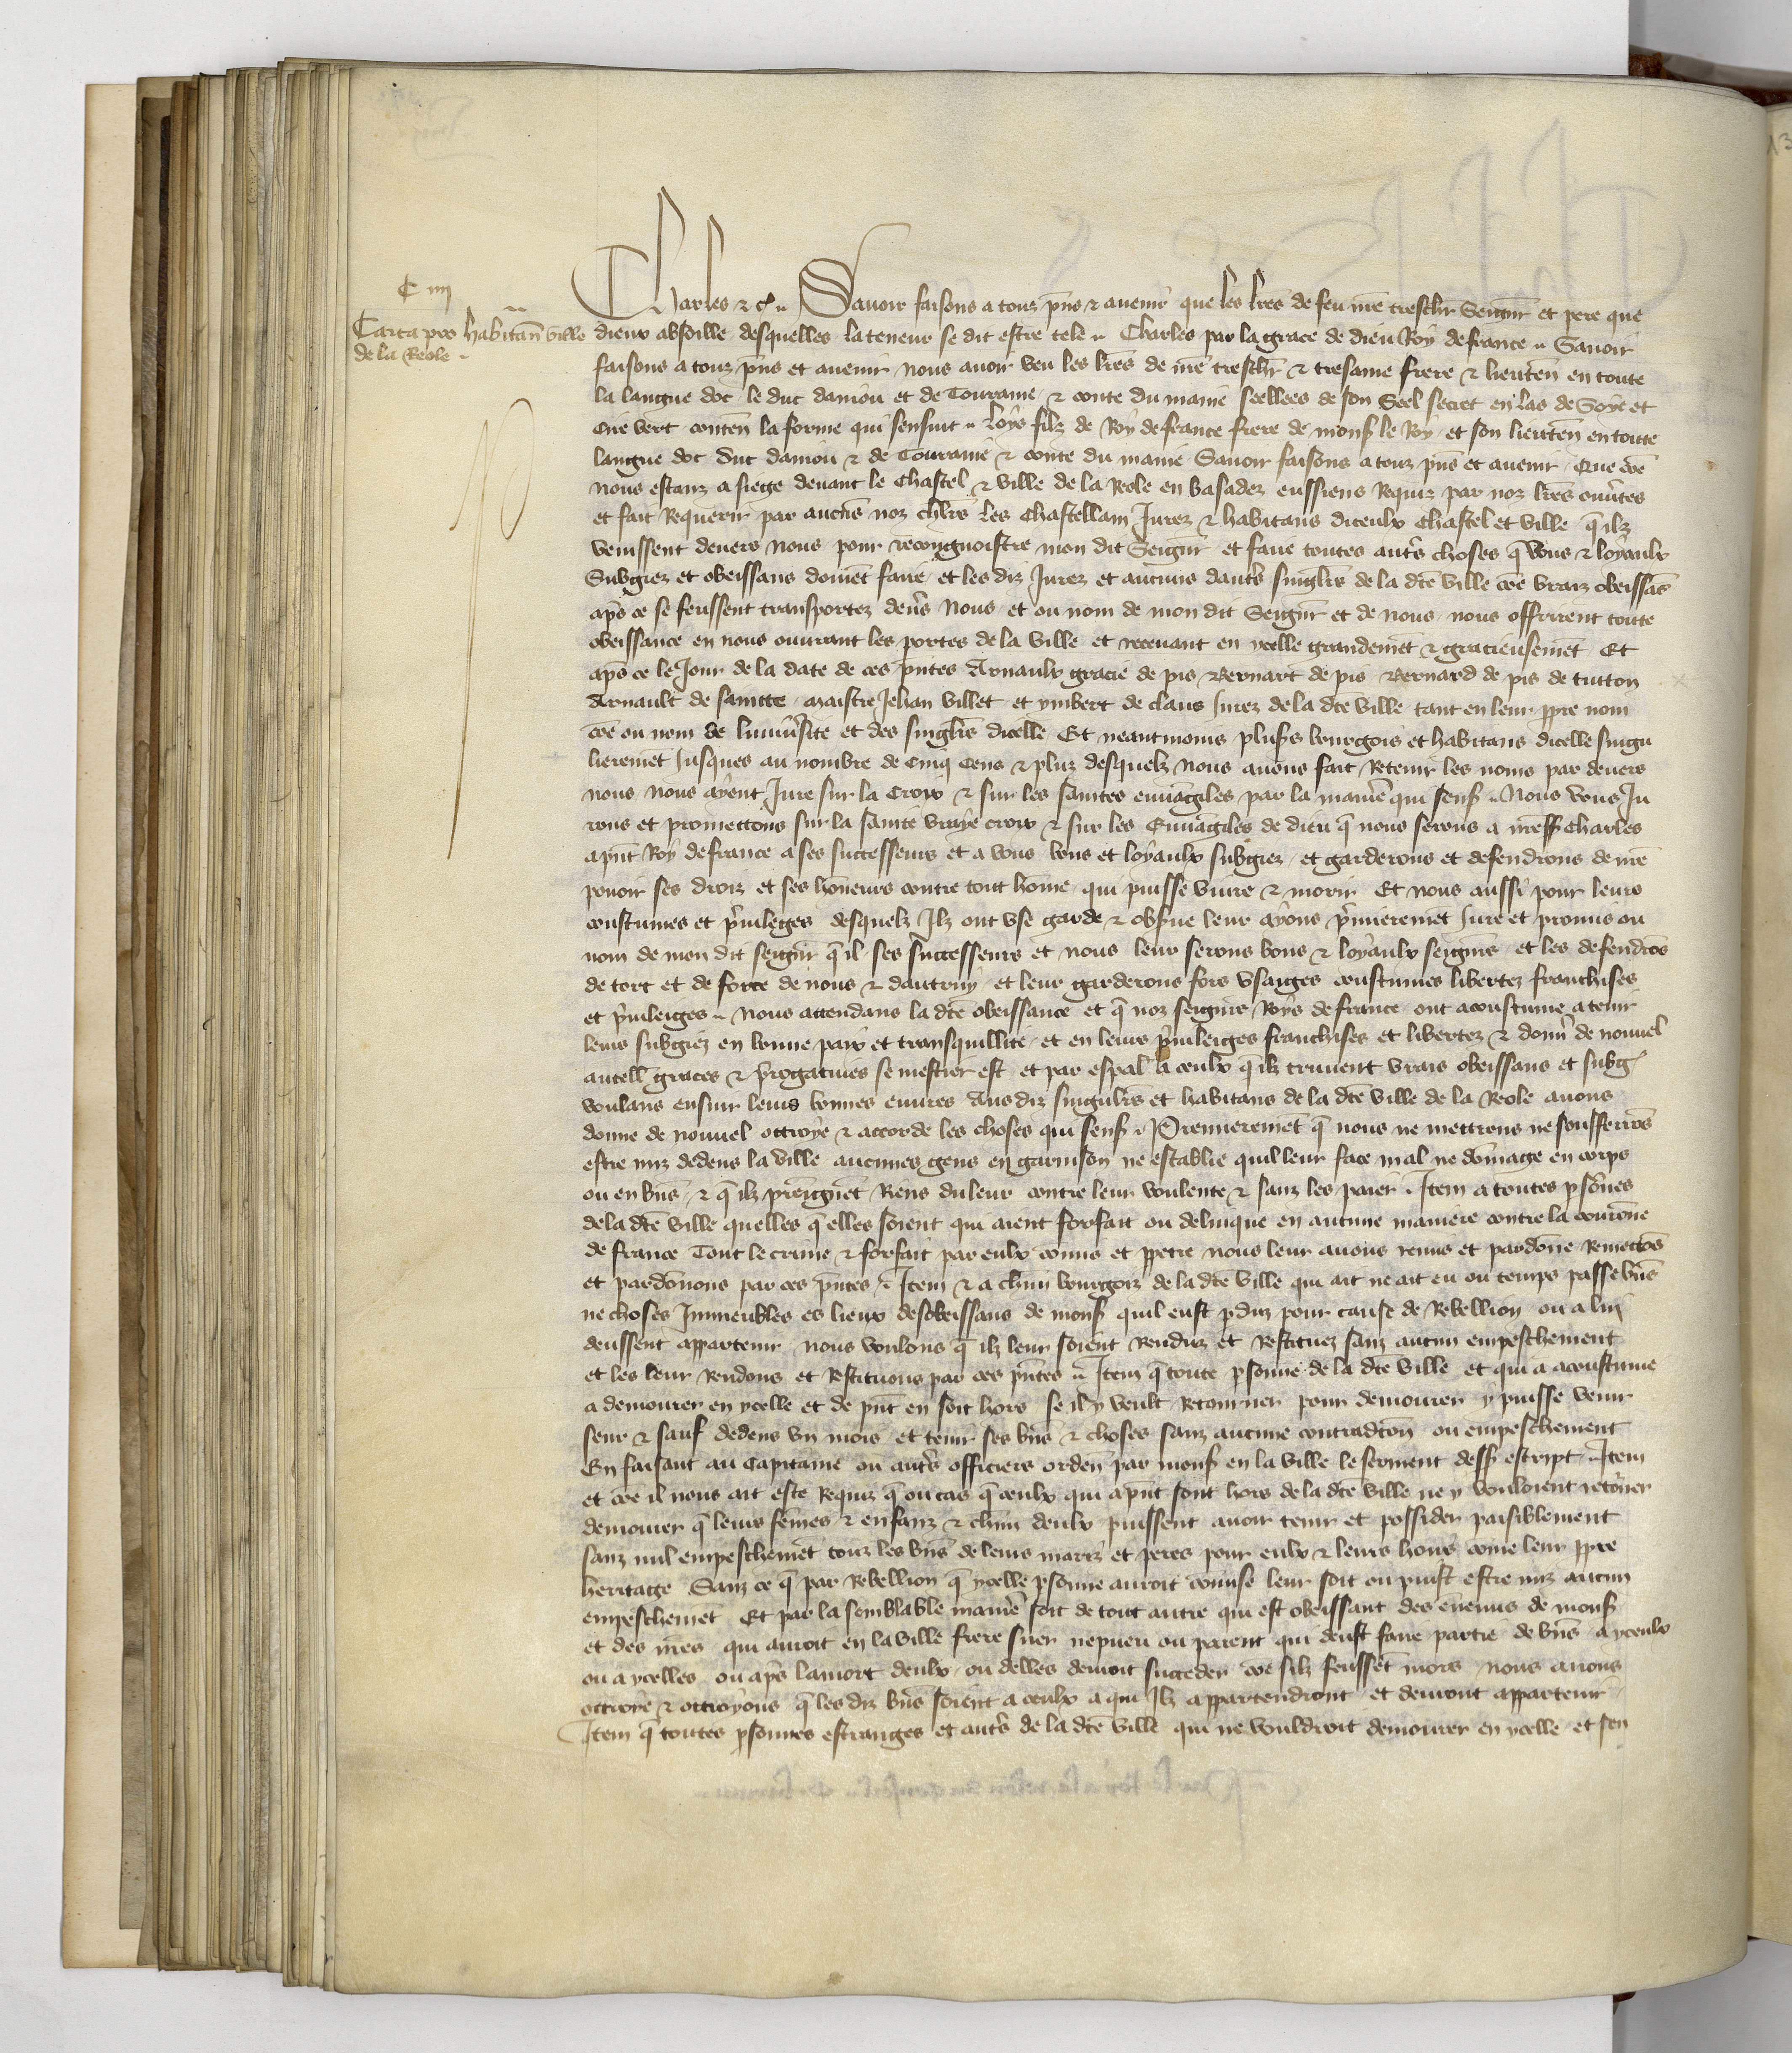 C iiii
Carta pro habitan̄ ville
de la Reole
Charles &c. Savoir faisons a tous pn̄s & avenir que les lr̄es de feu nr̄e treschr̄ Seigneur et pere que
dieux absoille desquelles la teneur se dit estre tele Charles par la grace de dieu Roy de france Savoir
faisons a touz pn̄s et avenir nous avoir veu les lr̄es de nr̄e treschr̄ & tresame frere & lieuten̄ en toute
la langue doc le duc daniou et de Touraine & conte du maine seellees de son Seel secret en las de Soye et
cire vert conten̄ la forme qui sensuit Loys filz de Roy de france frere de mons̄ le Roy et son lieuten̄ en toute
langue doc duc daniou & de Touraine & conte du maine Savoir faisons a touz pn̄s et avenir Que cōe
nous estanz a siege devant le Chastel & ville de la Reole en basadez eussiens Requiz par noz lr̄es ouv̄tes
et fait Requerir par aucūs noz chl̄rs les Chastellain Jurez & habitans diceulx Chastel et ville q̄ ilz
venissent devers nous pour recongnoistre mon dit Seignr̄ et faire toutes autr̄s choses q̄ bons & loyaulx
Subgiez et obeissans doivēt faire et les diz Jurez et aucuns dautr̄s singlr̄s de la dc̄e ville cōe vraiz obeissās
apr̄s ce se feussent transportez dev̄s nous et ou nom de mon dit Seignr̄ et de nous nous offrirent toute
obeissance en nous ouvrant les portes de la ville et recevant en ycelle grandemēt & gracieusemēt Et
apr̄s ce le Jour de la date de ces pn̄tes Arnaulx gracie de pis Bernart de pis Bernard de pis de tutton
Arnault de saintte maistre Jehan villet et ymbert de claus Jurez de la dc̄e ville tant en leur ppre nom
cōe ou nom de luniūsite et des singlr̄s dicelle Et neantmoins plus̄s bourgois et habitans dicelle singu
lieremēt Jusques au nombre de Cinq Cens & pluz desquelz nous avons fait Retenir les noms par devers
nous nous ayent Jure sur la Croix & sur les saintes euvāgiles par la maniē qui sens̄ Nous vous Ju
rons et promettons sur la sainte vraye croix & sur les Euvāgiles de dieu q̄ nous serons a mess̄ Charles
apn̄t Roy de france a ses successeurs et a vous bons et loyaulx subgiez et garderons et defendrons de nr̄e
pouoir ses droiz et ses hōneurs contre tout hōme qui puisse vivre & morir Et nous aussi pour leurs
coustumes et p̄vileges desquelz Ilz ont use garde & obs̄ve leur ayons p̄mieremēt Jure et promis ou
nom de mon dit seignr̄ q̄ il ses successeurs et nous leur serons bons & loyaulx seignr̄s et les defendrōs
de tort et de force de nous & dautruy et leur garderons fors usaiges coustumes libertez franchises
et p̄vileiges Nous attendans la dc̄e obeissance et q̄ noz seignr̄s Roys de france ont acoustume a tenir
leurs subgiez en bonne paix et transquillite et en leurs p̄vileiges franchises et libertez & donn̄ de nouvel
autell̄ graces & p̄rogatives se mestier est et par esp̄al a ceulx q̄ ilz truvent vrais obeissans et subḡ
voulans ensuir leurs bonnes euvres Aus diz singulr̄s et habitans de la dc̄e ville de la Reole avons
donne de nouvel ottroye & accorde les choses qui sens̄ Premieremēt q̄ nous ne mettrons ne soufferrōs
estre miz dedens la ville aucunes gens en garnison ne establie quil leur face mal ne dōmage en corps
ou en bn̄s & q̄ ilz preignēt Riens du leur contre leur voulente & sanz les paier Item a toutes p̄sōnes
de la dc̄e ville quelles q̄ elles soient qui aient forfait ou delinque en aucune maniere contre la courōne
de france Tout le crime & forfait par eulx cōmis et ppetre nous leur avons remis et pardōne Remettōs
et pardōnons par ces pn̄tes Item & a chūn bourgoiz de la dc̄e ville qui ait ne ait eu ou temps passe bn̄s
ne choses Immeubles es lieux desobeissans de mons̄ quil eust p̄duz pour cause de Rebellion ou a lui
deussent appartenir nous voulons q̄ ilz leur soient Renduz et Restituez sanz aucun empeschement
et les leur Rendons et Restituons par ces pn̄tes Item q̄ toute p̄sonne de la dc̄e ville et qui a acoustume
a demourer en ycelle et de pn̄t en soit hors se il y veult Retourner pour demourer y puisse venir
seur & sauf dedens un mois et tenir ses bn̄s & choses sanz aucune contradc̄on ou empeschement
En faisant au Capitaine ou autr̄s officiers orden̄ par mons̄ en la ville le serment dess̄ escript Item
et cōe il nous ait este Requiz q̄ ou cas q̄ ceulx qui apn̄t sont hors de la dc̄e ville ne y vouloient retōrner
demourer q̄ leurs fēmes & enfanz & chūn deulx puissent avoir tenir et possider paisiblement
sanz nul empeschemēt touz les bn̄s de leurs mariz et peres pour eulx & leurs hoirs come leur ppre
heritage Sanz ce q̄ par Rebellion q̄ ycelle p̄sonne auroit cōmise leur soit ou puist estre miz aucun
empeschemēt Et par la semblable maniē soit de tout autre qui est obeissant des ēnemis de mons̄
et des nr̄es qui auroit en la ville frere suer nepueu ou parent qui deust faire partie de bn̄s a yceulx
ou a ycelles ou apr̄s la mort deulx ou delles devoit succeder cōe silz feussēt mors nous avons
ottroye & ottroyons q̄ les diz bn̄s soient a ceulx a qui Ilz appartendront et devront appartenir
Item q̄ toutes p̄sonnes estranges et autr̄s de la dc̄e ville qui ne vouldroit demourer en ycelle et sen